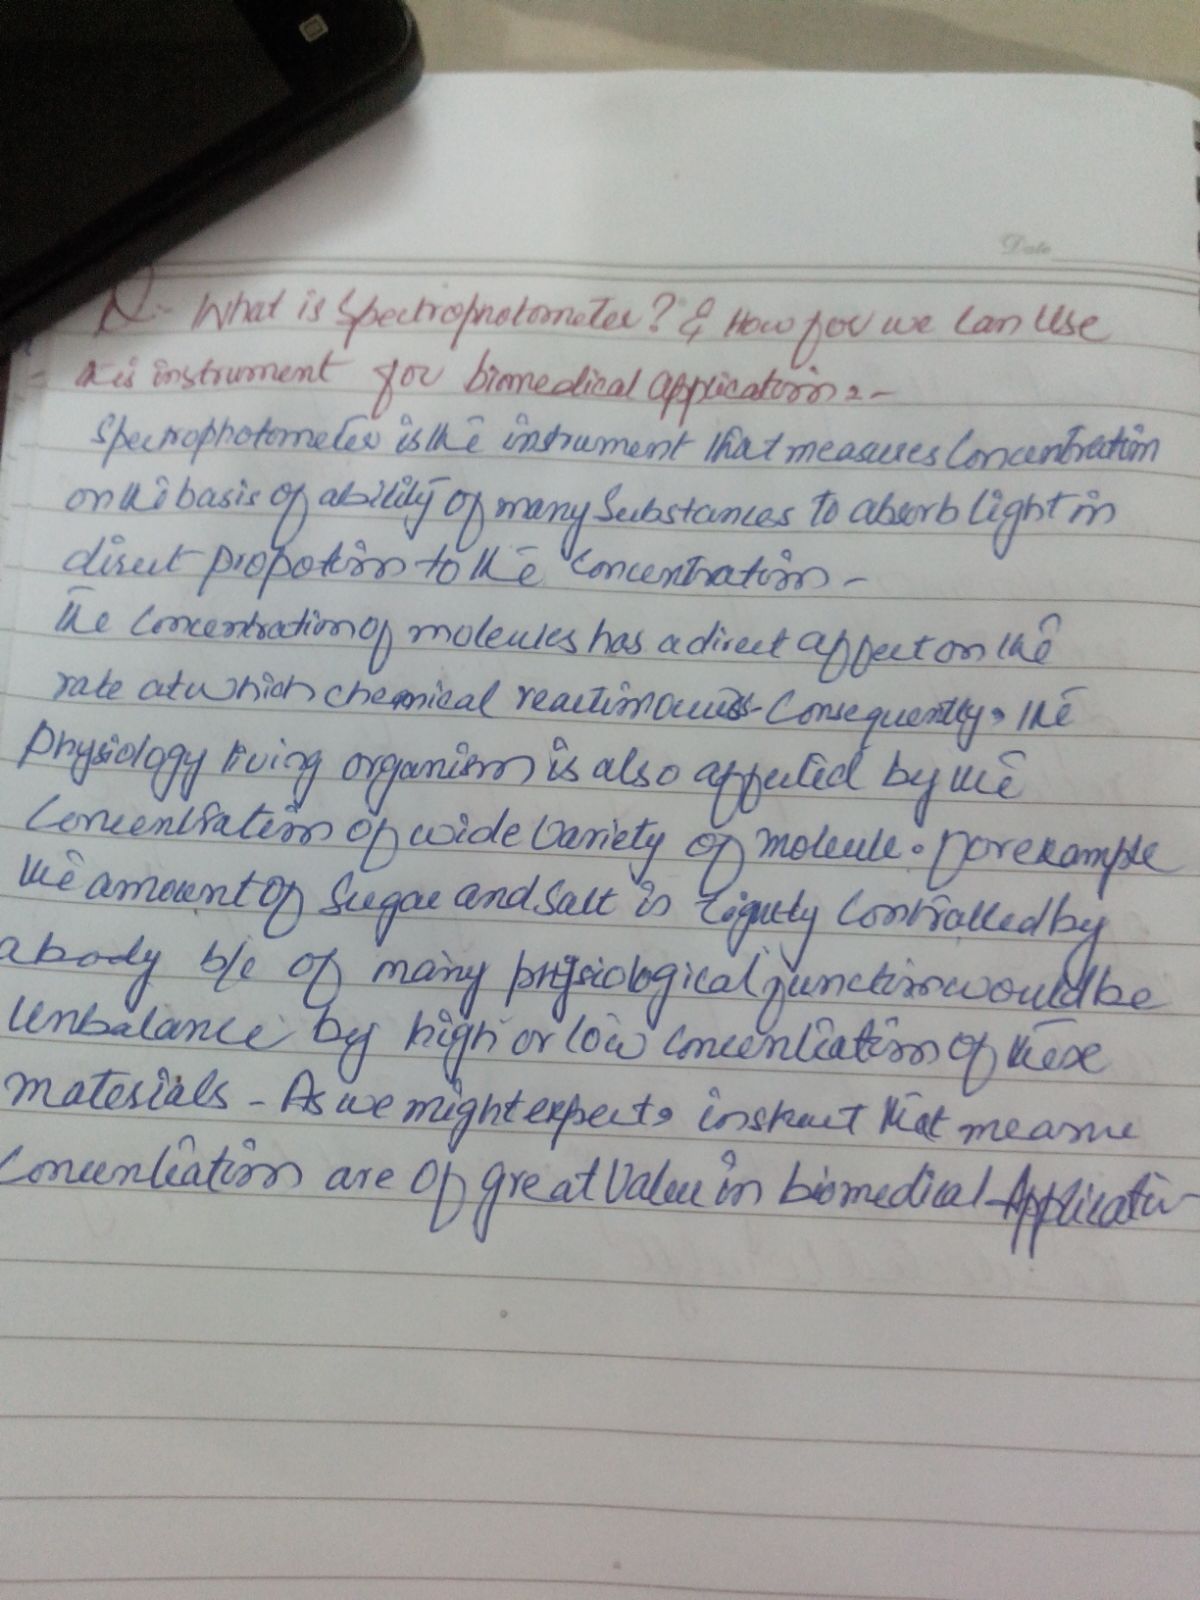 Date
Q:- What is Spectrophotometer? & How for we can use
this instrument for biomedical application:-
Spectrophotometer is the instrument that measures Concentration
on the basis of ability of many Substances to absorb light in
direct propotion to the Concentration -
The Concentration of molecules has a direct affect on the
rate at which chemical reaction occurs - Consequently, the
physiology living organism is also affected by the
Concentration of wide variety of molecule. For example
the amount of Sugar and Salt is tightly Controlled by
a body b/c of many physiological function would be
Unbalance by high or low Concentration of these
materials - As we might expect, that measure
Concentration are of great Value in biomedical Applicatio